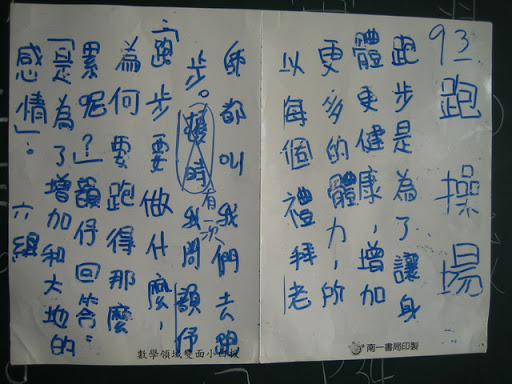 93.跑操場
跑步是為了讓身
體更健康，增加
更多的體力，所
以每個禮拜老
師都叫我們去跑
步。有一次我問韻伃
「跑步要做什麼，
為何要跑得那麼
累呢？」韻伃回答：
「是為了增加和大地的
感情」。六組
數學領域雙面小白板
南一書局印製